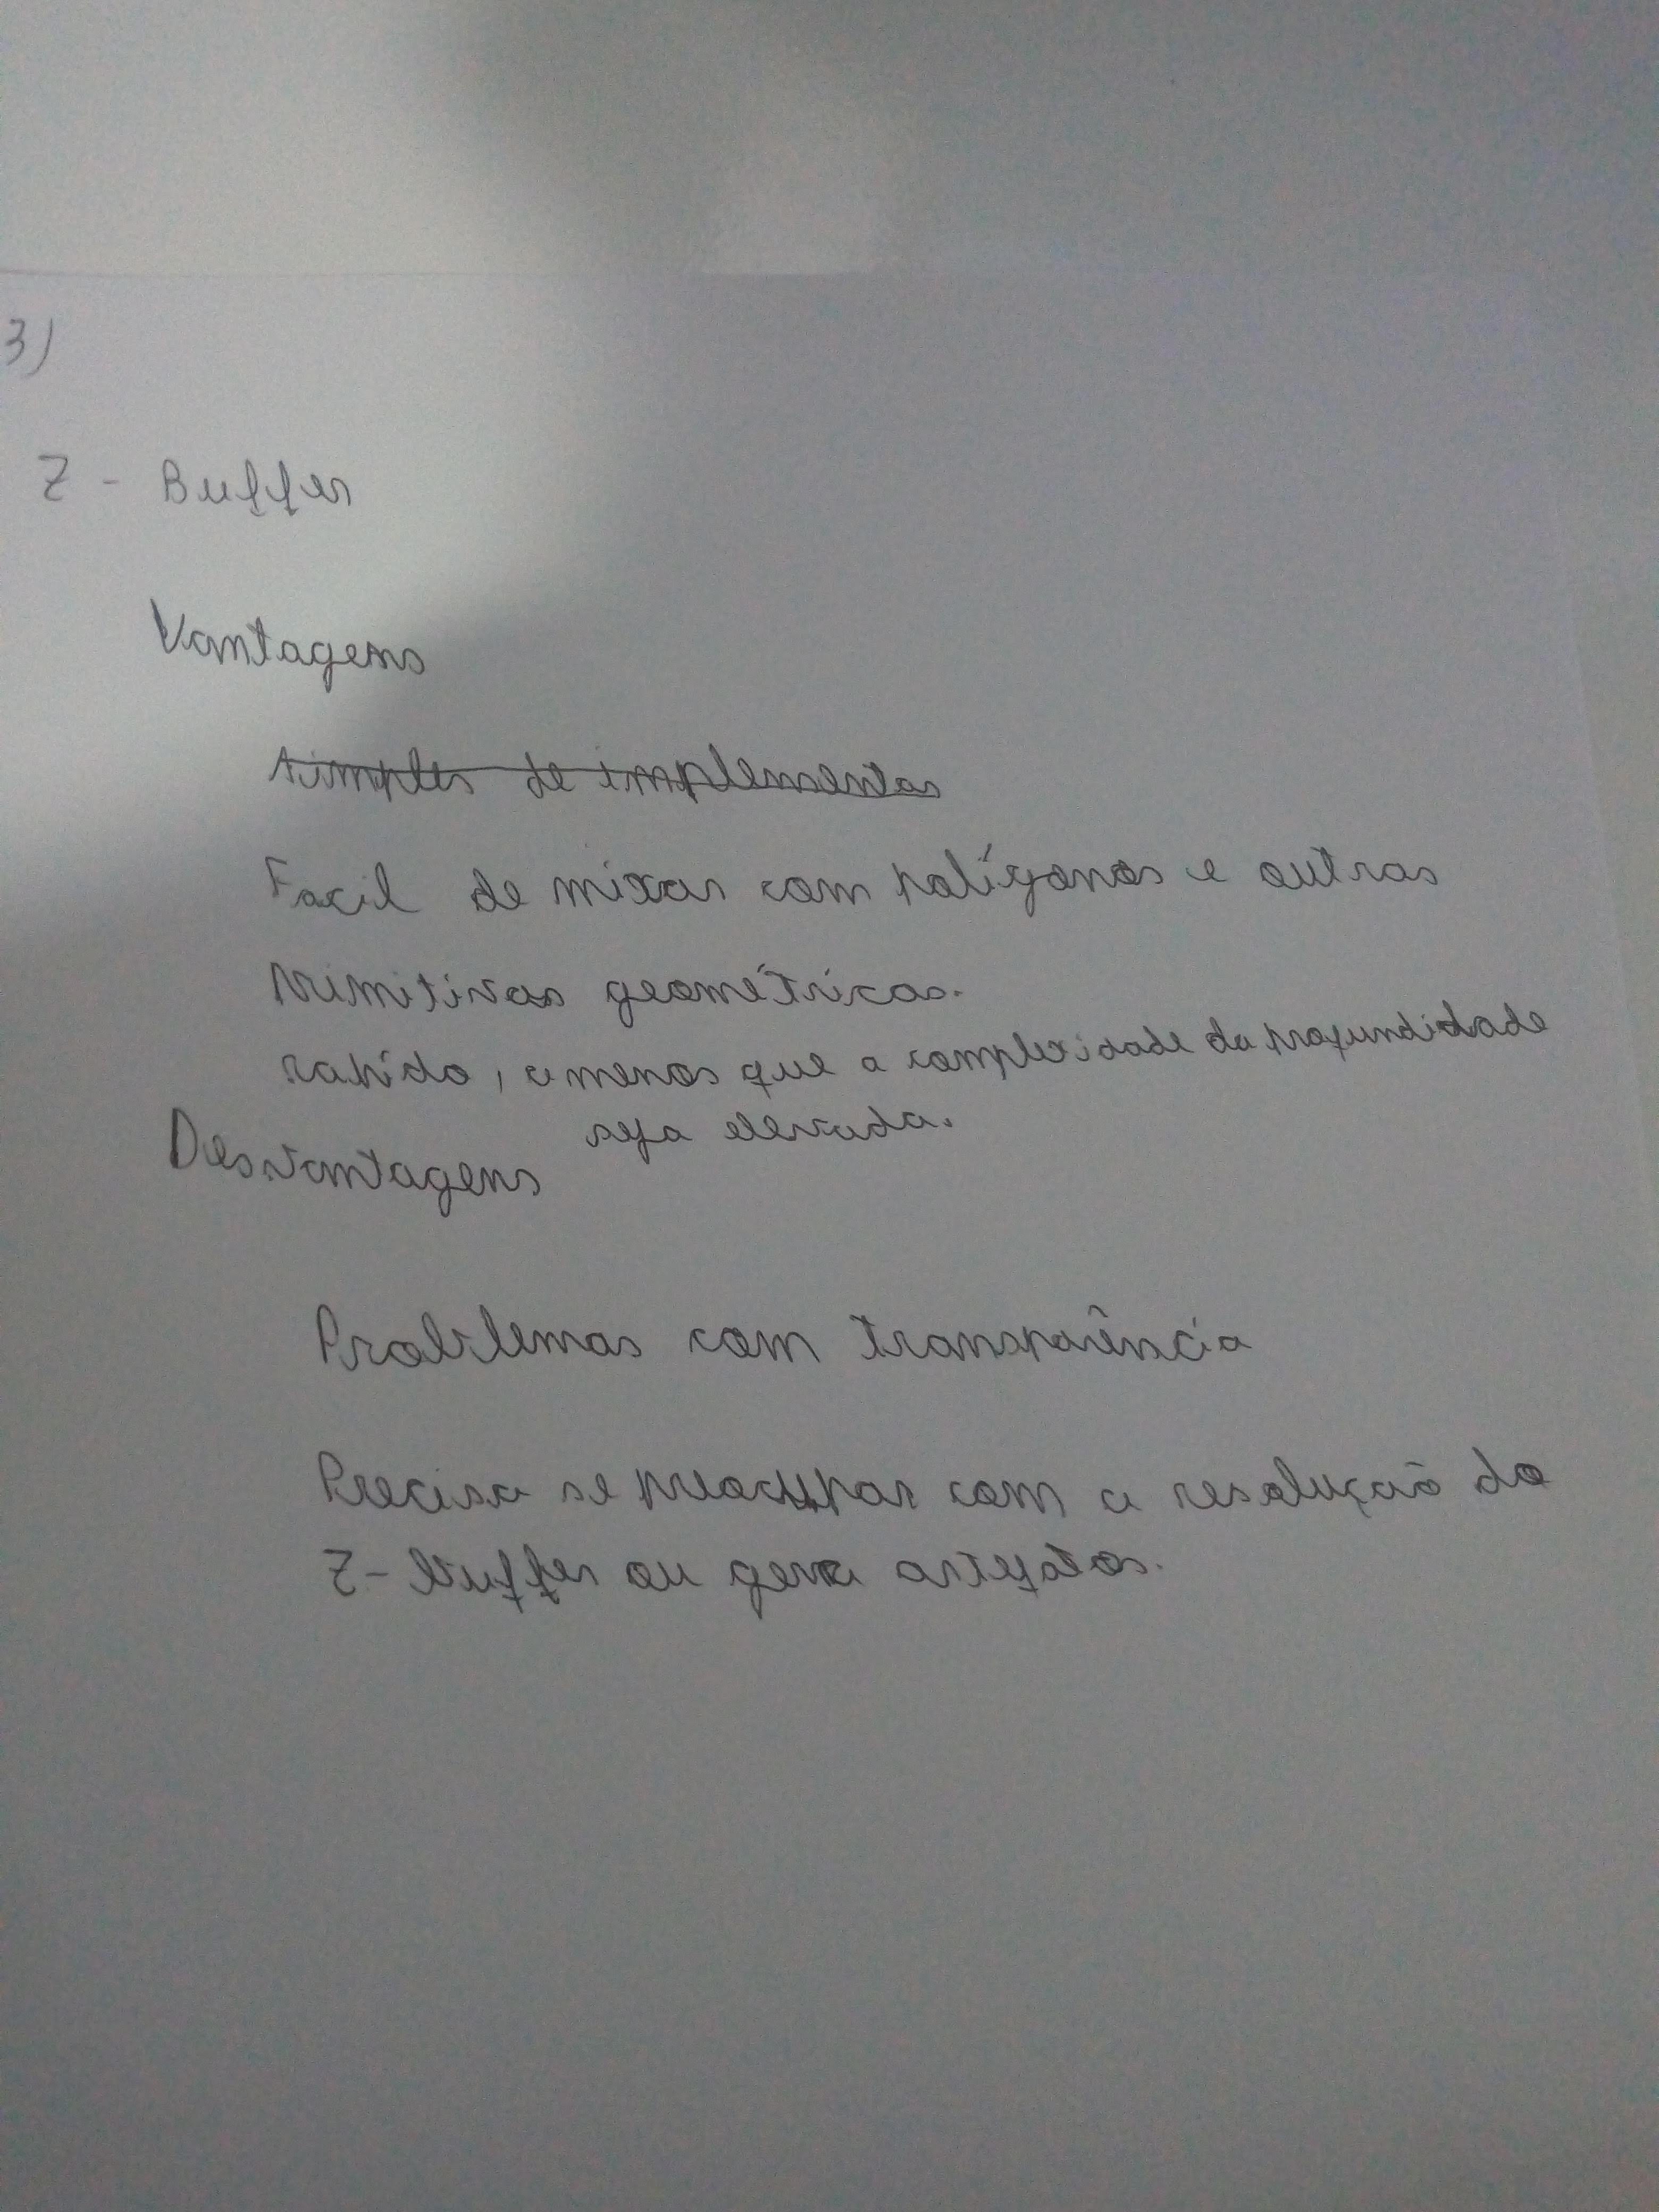 3)
Z - Buffer
Vantagens
simples de implementar
Facil de mixar com polígonos e outras
primitivas geométricas.
rapido, a menos que a complexidade da profundidade
seja elevada.
Desvantagens
Problemas com transparência
Precisa se preocupar com a resolução do
Z-buffer ou gera artefatos.